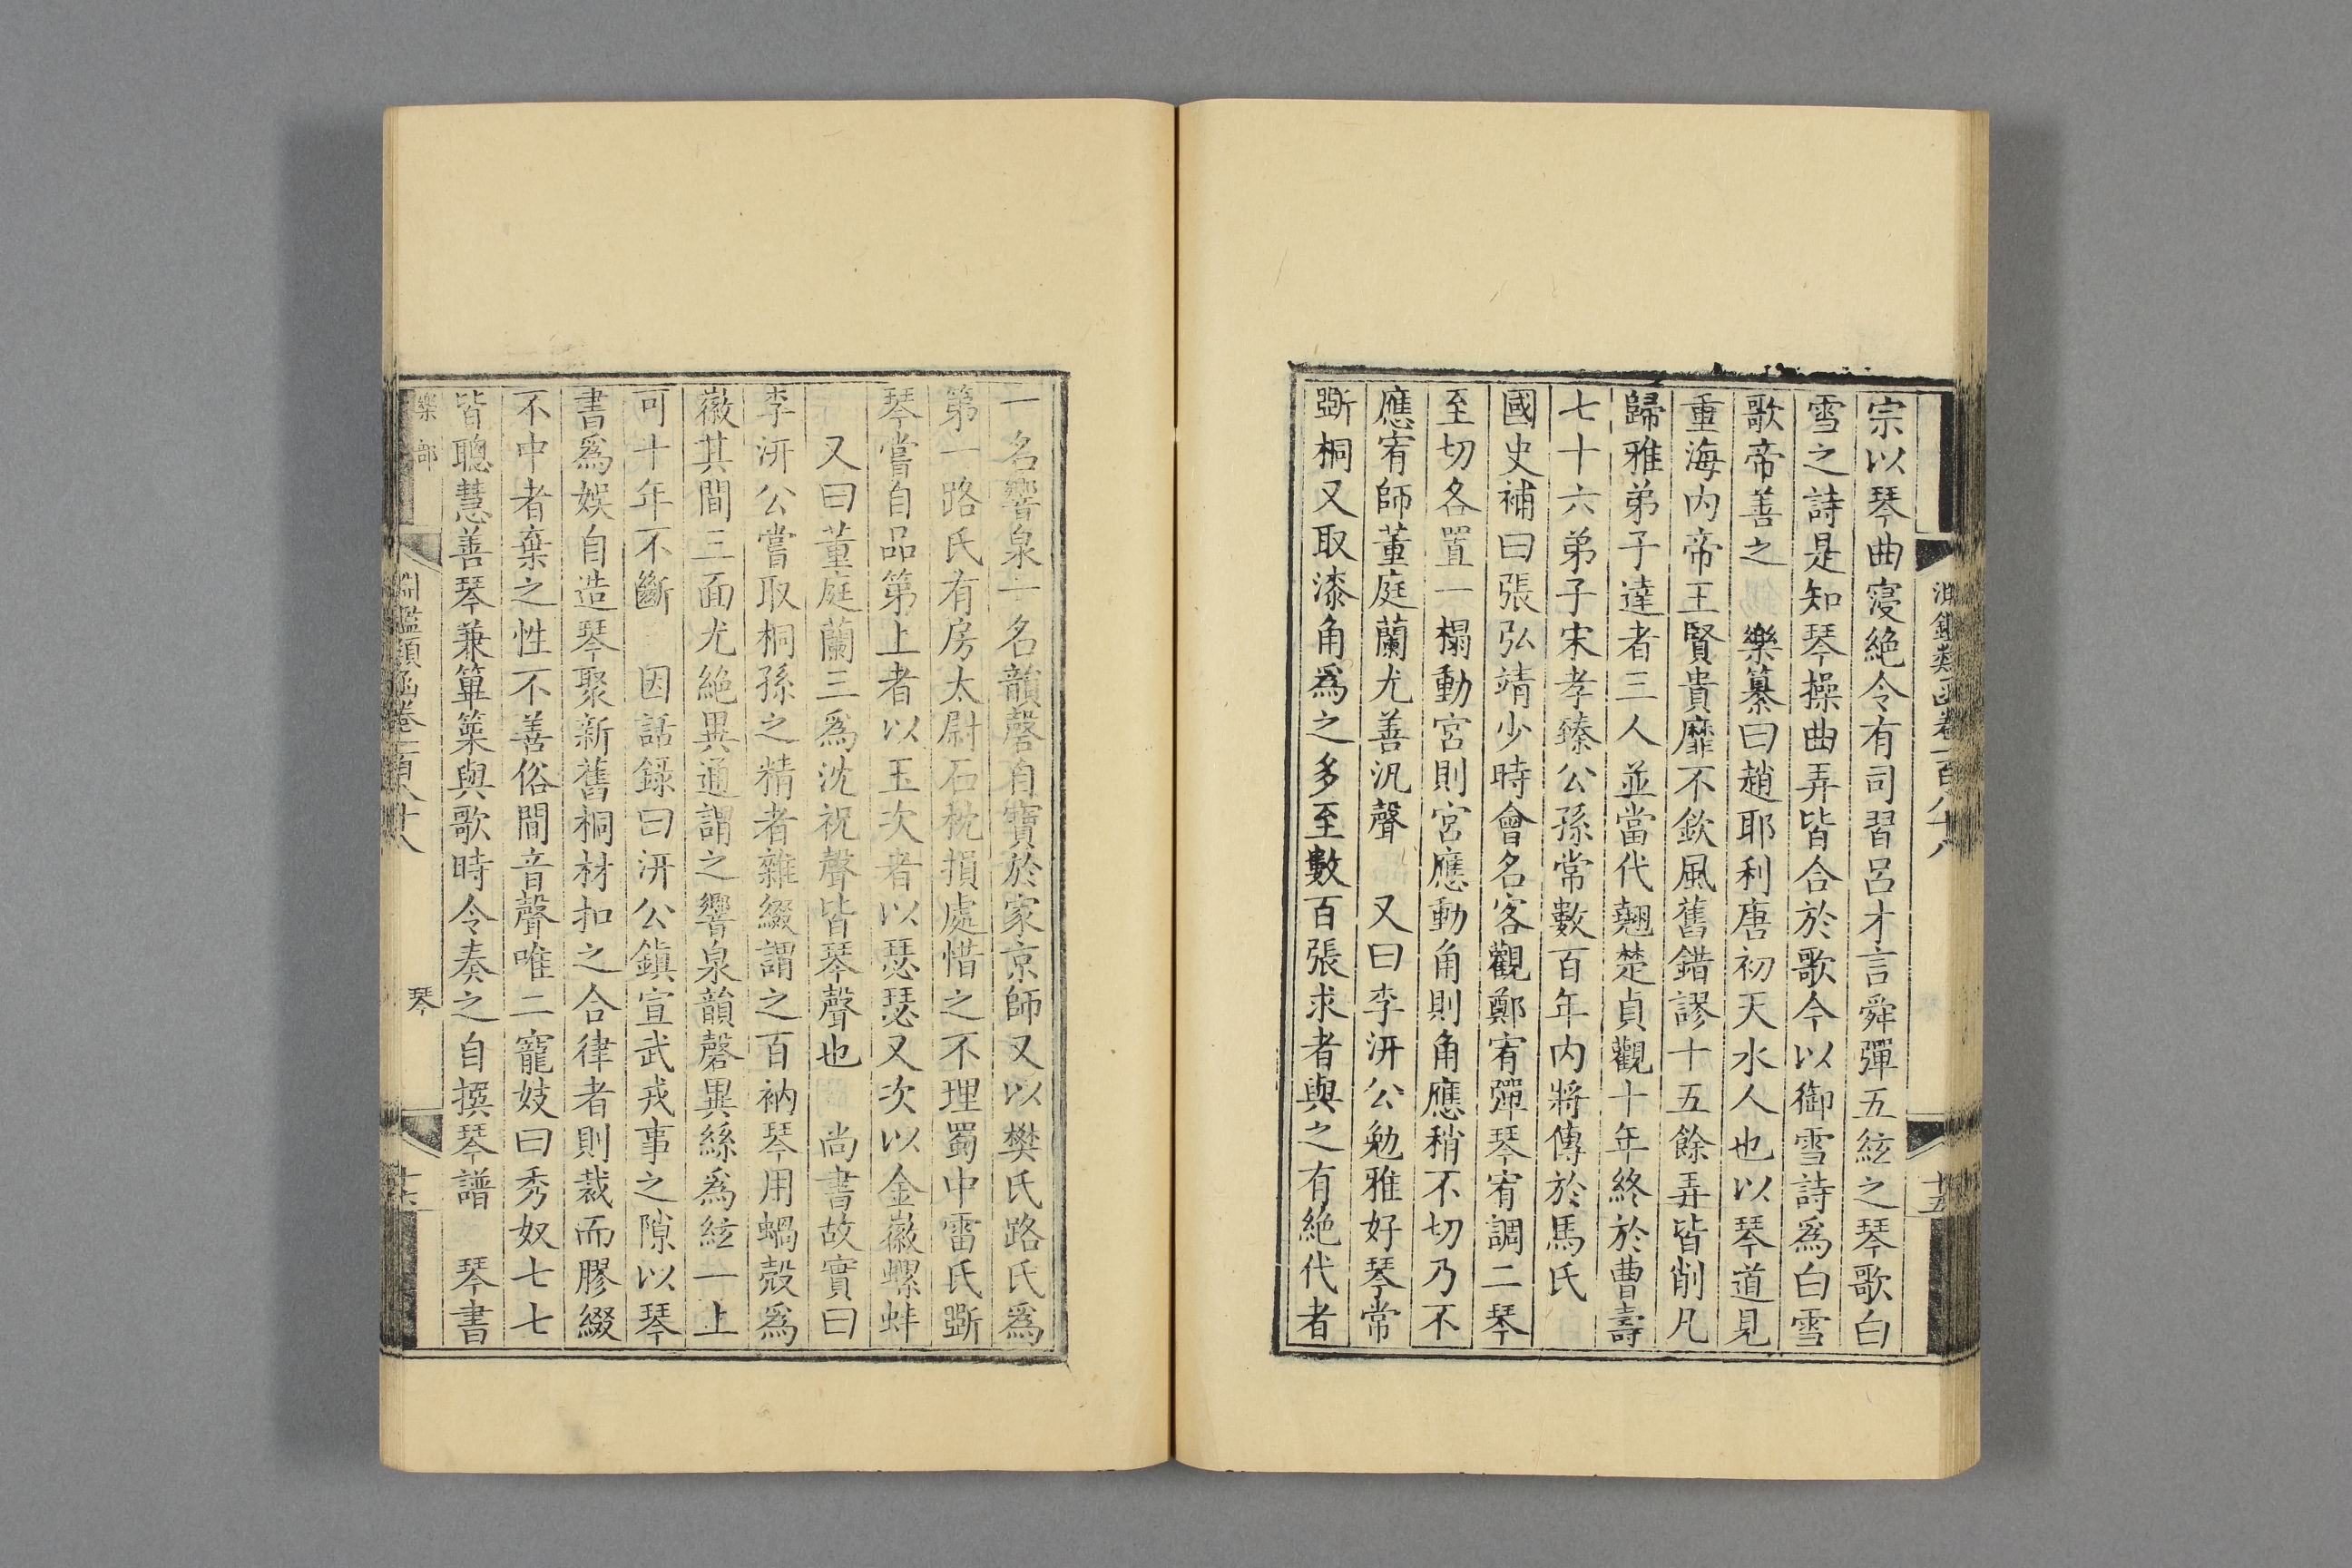 宗以琴曲寖絶令有司習呂才言舜彈五絃之琴歌白
雪之詩是知琴操曲弄皆合於歌今以御雪詩爲白雪
歌帝善之 樂纂曰趙耶利唐初天水人也以琴道見
重海内帝王賢貴靡不欽風舊錯謬十五餘弄皆削凡
歸雅弟子達者三人並當代翹楚貞觀十年終於曹壽
七十六弟子宋孝臻公孫常數百年内將傳於馬氏
國史補曰張弘靖少時會名客觀鄭宥彈琴宥調二琴
至切各置一榻動宮則宮應動角則角應稍不切乃不
應宥師董庭蘭尤善汎聲 又曰李汧公勉雅好琴常
斲桐又取漆角爲之多至數百張求者與之有絶代者
一名響泉一名韻磬自寶於家京師又以樊氏路氏爲
第一路氏有房太尉石枕損處惜之不理蜀中雷氏斲
琴嘗自品第上者以玉次者以瑟瑟又次以金徽螺蚌
又曰董庭蘭三爲沈祝聲皆琴聲也 尚書故實曰
李汧公嘗取桐孫之精者雜綴謂之百衲琴用蝸殼爲
徽其間三面尤絶異通謂之響泉韻磬異絲爲絃一上
可十年不斷 因話錄曰汧公鎮宣武戎事之隙以琴
書爲娱自造琴聚新舊桐材扣之合律者則裁而膠綴
不中者棄之性不善俗間音聲唯二寵妓曰秀奴七七
皆聰慧善琴兼箄篥與歌時令奏之自撰琴譜 琴書
樂部
淵鑑類函卷一百八十八
琴